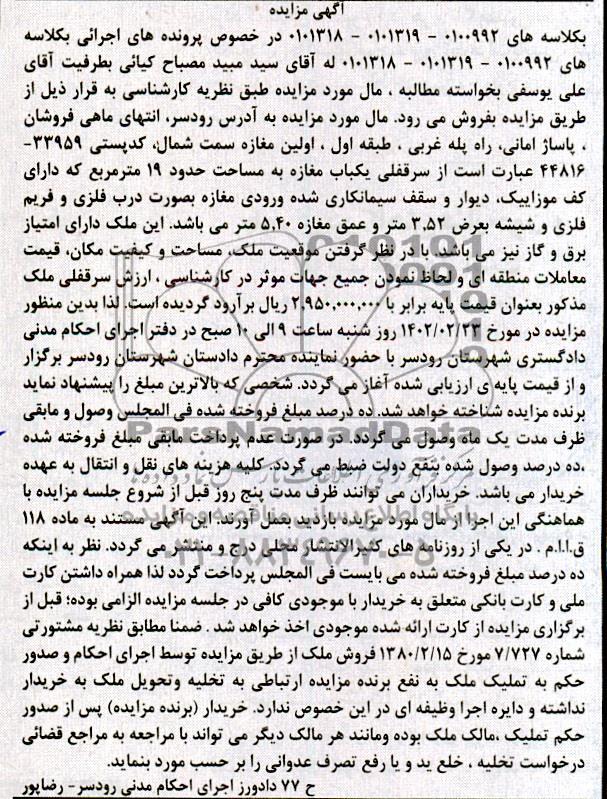 آگهی مزایده
بکلاسه های ۰۱۰۰۹۹۲ - ۰۱۰۱۳۱۹ - ۰۱۰۱۳۱۸ در خصوص پرونده های اجرائی بکلاسه
های ۰۱۰۰۹۹۲ - ۰۱۰۱۳۱۹ - ۰۱۰۱۳۱۸ له آقای سید مبید مصباح کیائی بطرفیت آقای
علی یوسفی بخواسته مطالبه ، مال مورد مزایده طبق نظریه کارشناسی به قرار ذیل از
طریق مزایده بفروش می رود. مال مورد مزایده به آدرس رودسر، انتهای ماهی فروشان
، پاساژ امانی، راه پله غربی ، طبقه اول ، اولین مغازه سمت شمال، کدپستی ۳۳۹۵۹-
۴۴۸۱۶ عبارت است از سرقفلی یکباب مغازه به مساحت حدود ۱۹ مترمربع که دارای
کف موزاییک، دیوار و سقف سیمانکاری شده ورودی مغازه بصورت درب فلزی و فریم
فلزی و شیشه بعرض ۳,۵۲ متر و عمق مغازه ۵,۴۰ متر می باشد. این ملک دارای امتیاز
برق و گاز نیز می باشد. با در نظر گرفتن موقعیت ملک، مساحت و کیفیت مکان، قیمت
معاملات منطقه ای و لحاظ نمودن جمیع جهات موثر در کارشناسی ، ارزش سرقفلی ملک
مذکور بعنوان قیمت پایه برابر با ۲,۹۵۰,۰۰۰,۰۰۰ ریال برآورد گردیده است. لذا بدین منظور
مزایده در مورخ ۱۴۰۲/۰۲/۲۳ روز شنبه ساعت ۹ الی ۱۰ صبح در دفتر اجرای احکام مدنی
دادگستری شهرستان رودسر با حضور نماینده محترم دادستان شهرستان رودسر برگزار
و از قیمت پایه ی ارزیابی شده آغاز می گردد. شخصی که بالاترین مبلغ را پیشنهاد نماید
برنده مزایده شناخته خواهد شد. ده درصد مبلغ فروخته شده فی المجلس وصول و مابقی
ظرف مدت یک ماه وصول می گردد. در صورت عدم پرداخت مابقی مبلغ فروخته شده
،ده درصد وصول شده بنفع دولت ضبط می گردد. کلیه هزینه های نقل و انتقال به عهده
خریدار می باشد. خریداران می توانند ظرف مدت پنج روز قبل از شروع جلسه مزایده با
هماهنگی این اجرا از مال مورد مزایده بازدید بعمل آورند. این آگهی مستند به ماده ۱۱۸
ق.ا.ا.م . در یکی از روزنامه های کثیرالانتشار محلی درج و منتشر می گردد. نظر به اینکه
ده درصد مبلغ فروخته شده می بایست فی المجلس پرداخت گردد لذا همراه داشتن کارت
ملی و کارت بانکی متعلق به خریدار با موجودی کافی در جلسه مزایده الزامی بوده؛ قبل از
برگزاری مزایده از کارت ارائه شده موجودی اخذ خواهد شد . ضمنا مطابق نظریه مشتورتی
شماره ۷/۷۲۷ مورخ ۱۳۸۰/۲/۱۵ فروش ملک از طریق مزایده توسط اجرای احکام و صدور
حکم به تملیک ملک به نفع برنده مزایده ارتباطی به تخلیه وتحویل ملک به خریدار
نداشته و دایره اجرا وظیفه ای در این خصوص ندارد. خریدار (برنده مزایده) پس از صدور
حکم تملیک ،مالک ملک بوده ومانند هر مالک دیگر می تواند با مراجعه به مراجع قضائی
درخواست تخلیه ، خلع ید و یا رفع تصرف عدوانی را بر حسب مورد بنماید.
ح ۷۷ دادورز اجرای احکام مدنی رودسر- رضاپور
ParsNamadData
پایگاه اطلاع رسانی مناقصه و مزایده